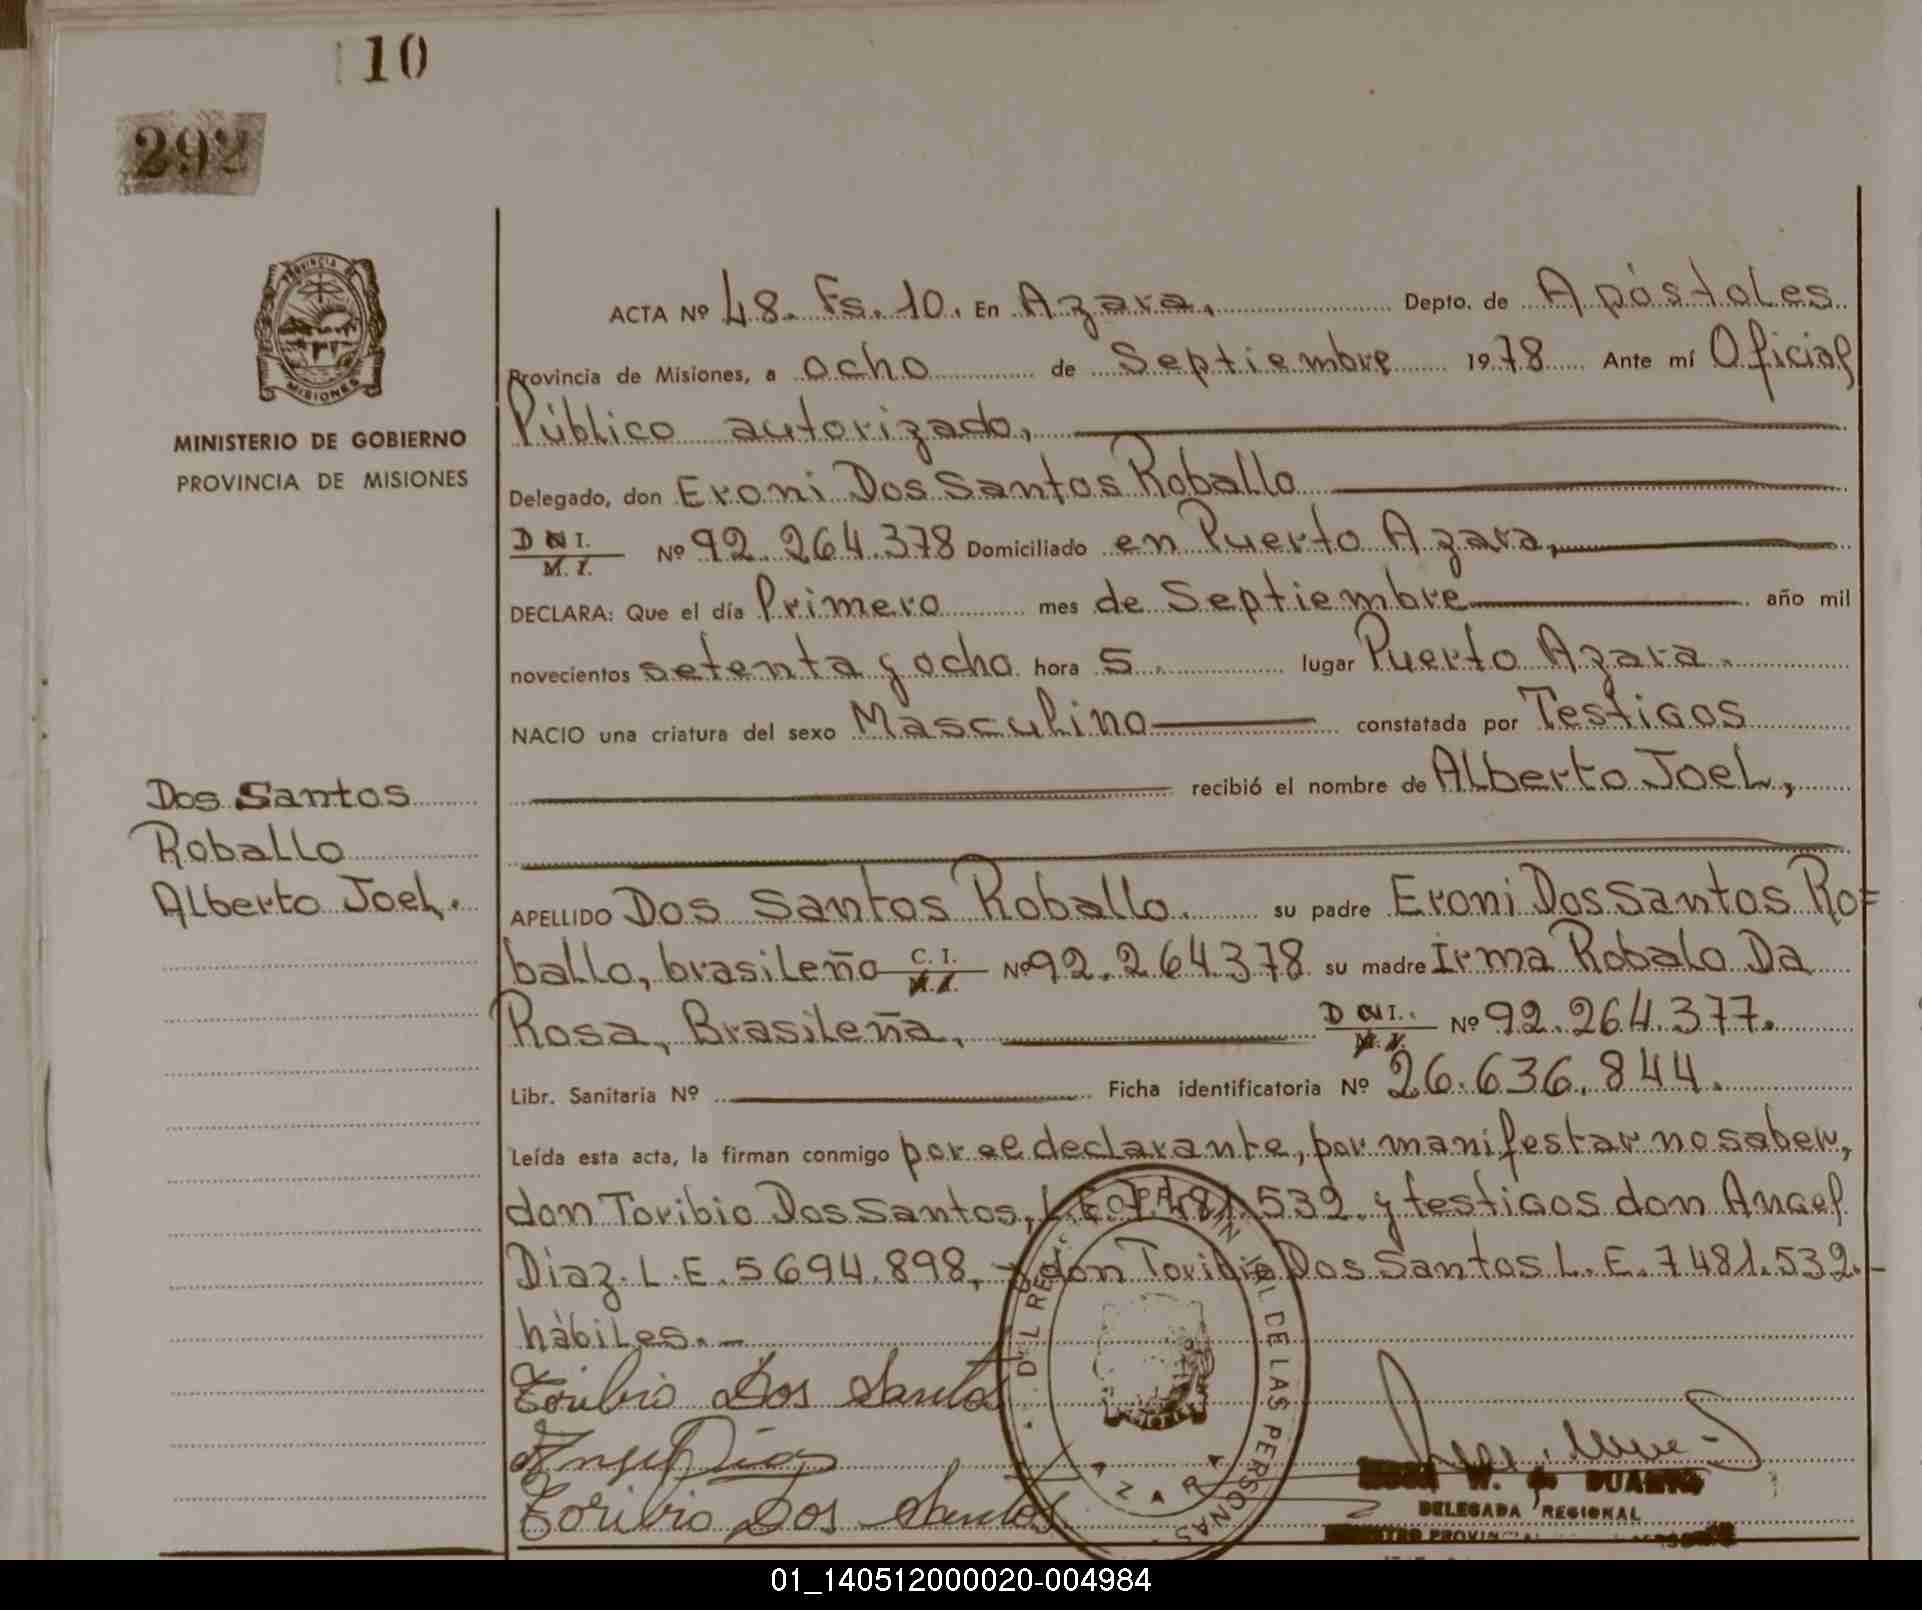 10
292
PROVINCIA DE
MISIONES
MINISTERIO DE GOBIERNO
PROVINCIA DE MISIONES
Dos Santos
Roballo
Alberto Joel.
ACTA Nº 48. Fs. 10. En Azara, Depto. de Apóstoles
Provincia de Misiones, a ocho de Septiembre 1978 Ante mí Oficial
Público autorizado,
Delegado, don Eroni Dos Santos Roballo
DNI. M. I. Nº 92.264.378 Domiciliado en Puerto Azara,
DECLARA: Que el día Primero mes de Septiembre año mil
novecientos setenta y ocho hora 5. lugar Puerto Azara.
NACIO una criatura del sexo Masculino constatada por Testigos
recibió el nombre de Alberto Joel,
APELLIDO Dos Santos Roballo. su padre Eroni Dos Santos Ro=
ballo, brasileño C. I. M. I. Nº 92.264.378 su madre Irma Robalo Da
Rosa, Brasileña, DNI. M. I. Nº 92.264.377.
Libr. Sanitaria Nº Ficha identificatoria Nº 26.636.844.
Leída esta acta, la firman conmigo por el declarante, por manifestar no saber,
don Toribio Dos Santos, L.E. 7.481.532. y testigos don Angel
Diaz. L.E. 5694.898, y don Toribio Dos Santos L.E. 7481.532.-
hàbiles.-
Toribio Dos Santos
Angel Diaz
Toribio Dos Santos
DEL REG. PROVINCIAL DE LAS PERSONAS
MISIONES
AZARA
W. de DUARTE
DELEGADA REGIONAL
01_140512000020-004984